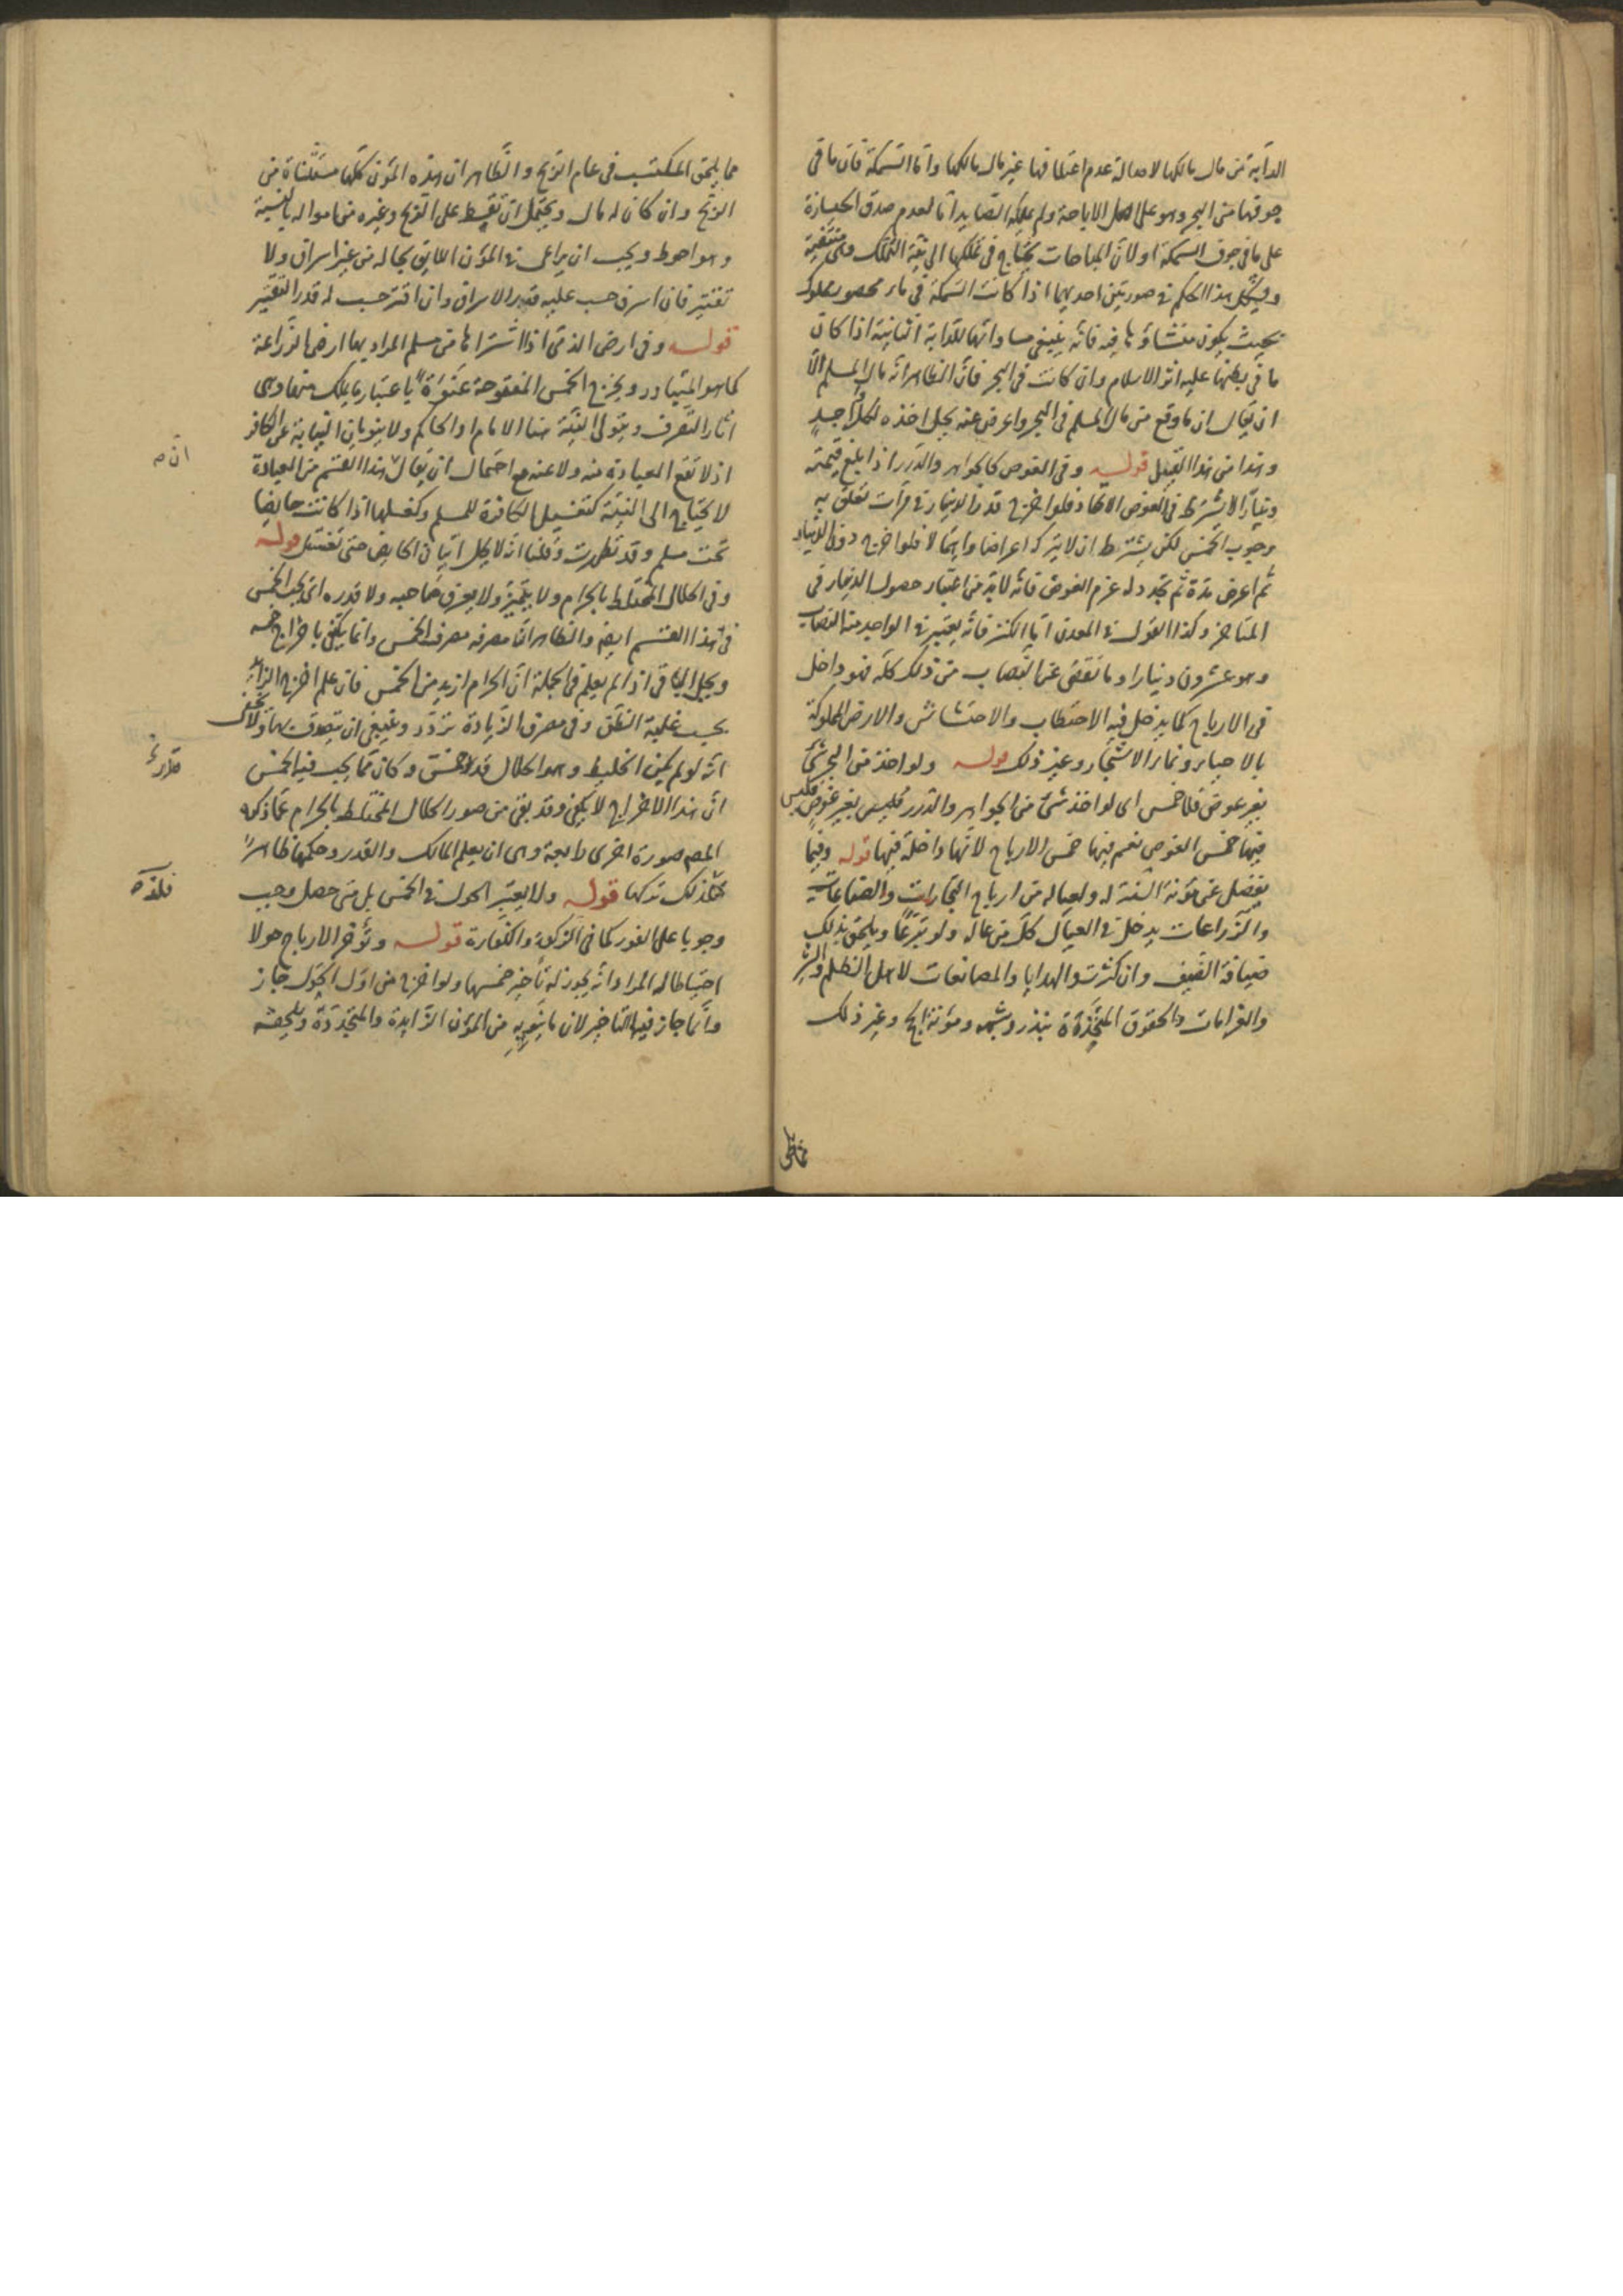 الدابة من مال مالكها لاصالة عدم اعتلافها غير مال مالكها واما السمكة فان ما في
جوفها من البحر وهو على اصل الاباحة ولم يملكه الصايد اما لعدم صدق الحيازة
على ما في جوف السمكة او لان المباحات يحتاج في تملكها الى نية التملك وهى منتفية
ويشكل هذا الحكم في صورتين احديهما اذا كانت السمكة في ماء محصور مملوك
بحيث يكون منشاؤها فيه فانه ينبغي مساواتها للدابة الثانية اذا كان
ما في بطنها عليه اثر الاسلام وان كانت في البحر فان الظاهر انه مال المسلم الا
ان يقال ان ما وقع من مال المسلم في البحر واعرض عنه يحل اخذه لكل واجد
وهذا من هذا القبيل قوله وفي الغوص كالجواهر والدرر اذا بلغ قيمته
دينارا لا يشترط في الغوص الاتحاد فلو اخرج قدر الدينار في مرات تعلق به
وجوب الخمس لكن يشترط ان لا يترك اعراضا واهمالا فلو اخرج دون الدينار
ثم اعرض مدة ثم تجدد له عزم الغوص فانه لا بد من اعتبار حصول الدينار في
المتاخر وكذا القول في المعدن اما الكنز فانه يعتبر في الواحد منه النصاب
وهو عشرون دينارا وما نقص عن النصاب من ذلك كله فهو داخل
في الارباح كما يدخل فيه الاحتطاب والاحتشاش والارض المملوكة
بالاحياء وثمار الاشجار وغير ذلك قوله ولو اخذ من البحر شئ
بغير غوص فلا خمس اى لو اخذ شئ من الجواهر والدرر فليس بغير غوص فليس
فيها خمس الغوص نعم فيها خمس الارباح لانها داخلة فيها قوله وفيما
يفضل عن مؤنة السنة له ولعياله من ارباح التجارات والصناعات
والزراعات يدخل في العيال كل من عاله ولو تبرعا ويلحق بذلك
ضيافة الضيف وان كثرت والهدايا والمصانعات لاهل الظلم والشر
والغرامات والحقوق المتجددة بنذر وشبهه ومؤنة الحج وغير ذلك
مما يلحق المكتسب في عام الربح والظاهر ان هذه المؤن كلها مستثناة من
الربح وان كان له مال ويحتمل ان تقسط على الربح وغيره من امواله بالنسبة
وهو احوط ويجب ان يراعى في المؤن اللايق بحاله من غير اسراف ولا
تقتير فان اسرف حسب عليه قدر الاسراف وان اقتر حسب له قدر التقتير
قوله وفي ارض الذمى اذا اشتراها من مسلم المراد بها ارض الزراعة
كما هو المتبادر ويخرج الخمس المفتوحة عنوة باعتبار ما يملك منها وهى
اثار التصرف ويتولى النية هنا الامام او الحاكم ولا ينويان النيابة عن الكافر
اذ لا تقع العبادة منه ولا عنه مع احتمال ان يقال هذا القسم من العبادة
ان صه
لا يحتاج الى النية كتغسيل الكافرة للمسلم وكغسلها اذا كانت حايضا
تحت مسلم وقد تطهرت وقلنا انه لا يحل اتيان الحايض حتى تغتسل قوله
وفي الحلال المختلط بالحرام ولا يتميز ولا يعرف صاحبه ولا قدره اى يجب الخمس
في هذا القسم ايضا والظاهر ان مصرفه مصرف الخمس وانما يكتفى باخراج خمسه
ويحل الباقي اذا لم يعلم في الجملة ان الحرام ازيد من الخمس فان علم اخرج الزائد
بحسب غلبة الظن وفي مصرف الزيادة تردد وينبغي ان يتصدق بها ولا يخفى
انه لو لم يكن الخليط وهو الحلال قد خمس وكان مما يجب فيه الخمس
ان هذا الاخراج لا يكفى وقد بقى من صور الحلال المختلط بالحرام عما ذكره
المصه صورة اخرى رابعة وهى ان يعلم المالك والقدر وحكمها ظاهرا
فلذلك تركها قوله ولا يعتبر الحول في الخمس بل متى حصل وجب
فلذه
وجوبا على الفور كما في الزكوة والكفارة قوله وتؤخر الارباح حولا
احتياطا له المراد انه يجوز له تاخير خمسها ولو اخرج من اول الحول جاز
وانما جاز فيها التاخير لان ما ينوبه من المؤن الزايدة والمتجددة ويلحقه